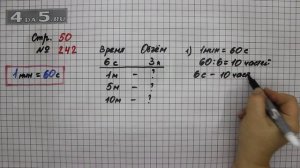 4DA5.ru
Стр. 50
№ 242
1 мин = 60 с
Время Объём
6 с 3 л
1 м - ?
5 м - ?
10 м - ?
1) 1 мин = 60 с
60 : 6 = 10 частей
6 с - 10 част